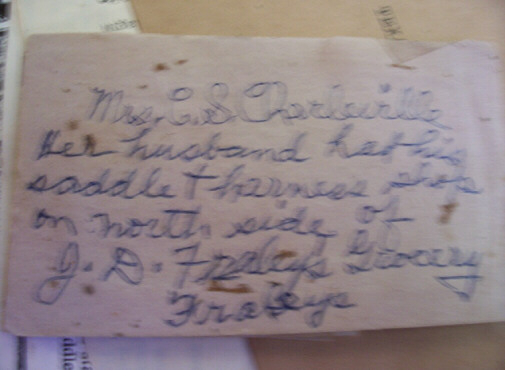 Mrs. C. S. Charleville
Her husband had his
saddle + harness shop
on north side of
J. D. Fraleys Grocery
Fraleys